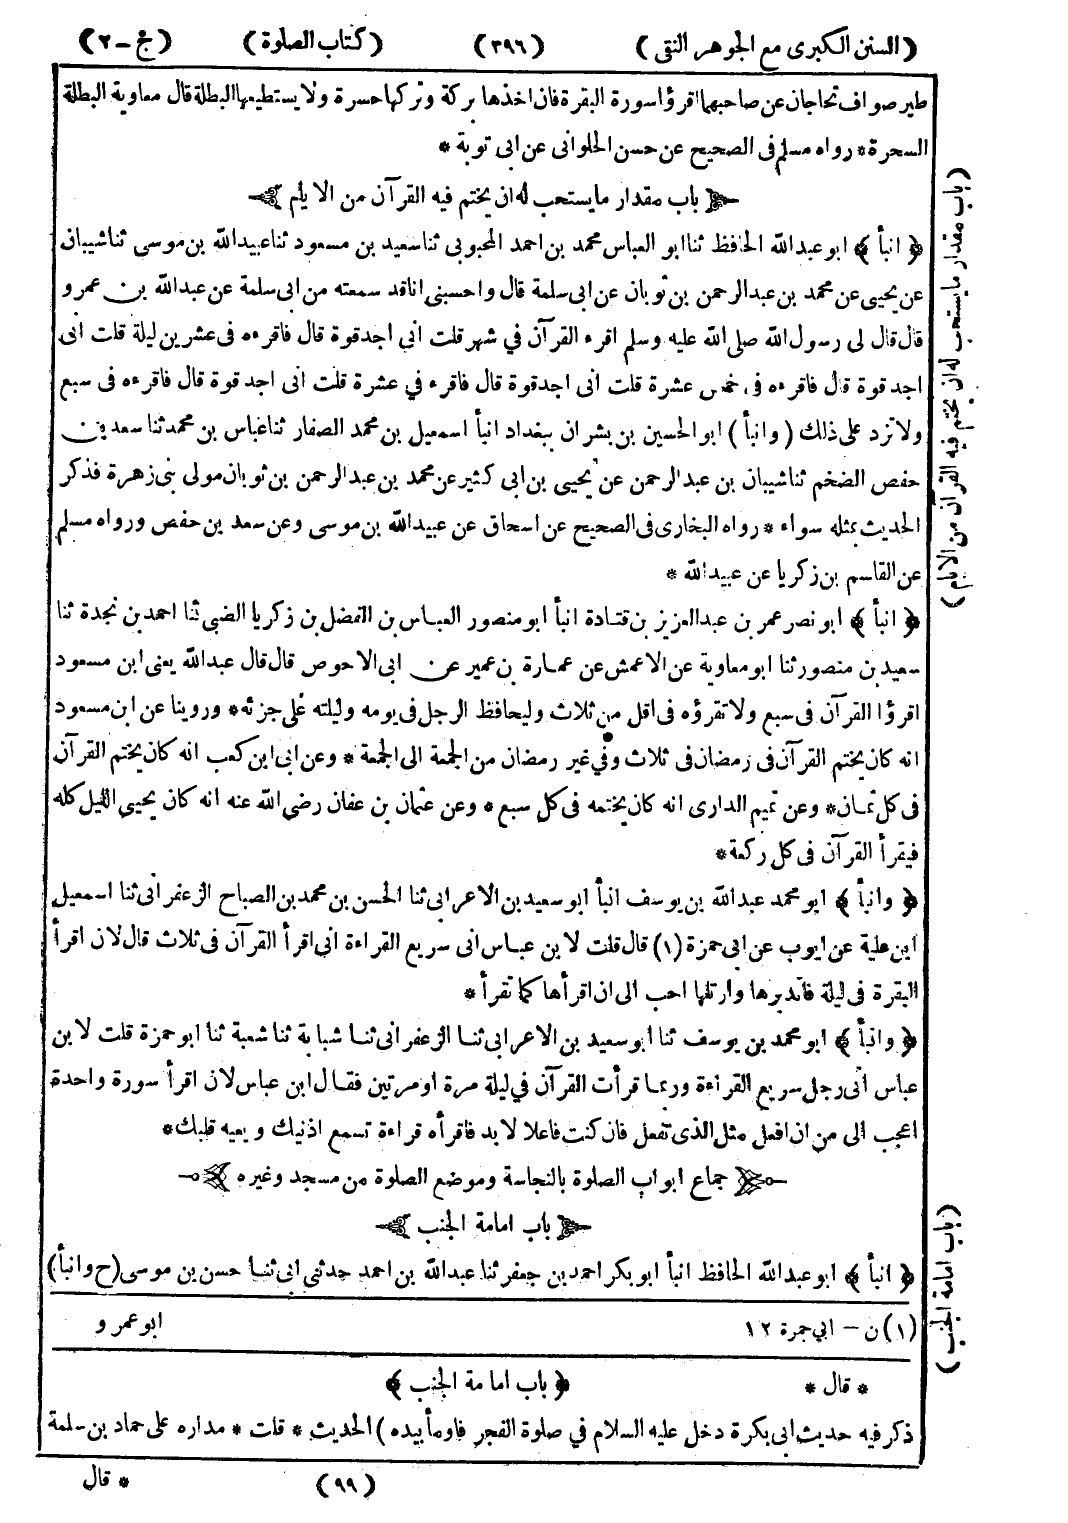 (السنن الكبرى مع الجوهر النقى) (٣٩٦) (كتاب الصلوة) (ج - ٢)
طير صواف تحاجان عن صاحبهما اقرؤا سورة البقرة فان اخذها بركة وتركها حسرة ولا يستطيعها البطلة قال معاوية البطلة
السحرة * رواه مسلم فى الصحيح عن حسن الحلوانى عن ابى توبة *
باب مقدار ما يستحب له ان يختم فيه القرآن من الايام
﴿ انبأ ﴾ ابو عبدالله الحافظ ثنا ابو العباس محمد بن احمد المحبوبى ثنا سعيد بن مسعود ثنا عبيدالله بن موسى ثنا شيبان
عن يحيى عن محمد بن عبدالرحمن بن ثوبان عن ابى سلمة قال واحسبنى انا قد سمعته من ابى سلمة عن عبدالله بن عمرو
قال قال لى رسول الله صلى الله عليه وسلم اقرء القرآن في شهر قلت انى اجد قوة قال فاقرءه فى عشرين ليلة قلت انى
اجد قوة قال فاقرءه فى خمس عشرة قلت انى اجد قوة قال فاقرء في عشرة قلت انى اجد قوة قال فاقرءه فى سبع
ولا تزد على ذلك (وانبأ) ابو الحسين بن بشران ببغداد انبأ اسمعيل بن محمد الصفار ثنا عباس بن محمد ثنا سعد بن
حفص الضخم ثنا شيبان بن عبد الرحمن عن يحيى بن ابى كثير عن محمد بن عبدالرحمن بن ثوبان مولى بنى زهرة فذكر
الحديث بمثله سواء * رواه البخارى فى الصحيح عن اسحاق عن عبيدالله بن موسى وعن سعد بن حفص ورواه مسلم
عن القاسم بن زكريا عن عبيدالله *
﴿ انبأ ﴾ ابو نصر عمر بن عبدالعزيز بن قتادة انبأ ابو منصور العباس بن الفضل بن زكريا الضبى ثنا احمد بن نجدة ثنا
سعيد بن منصور ثنا ابو معاوية عن الاعمش عن عمارة بن عمير عن ابى الاحوص قال قال عبدالله يعنى ابن مسعود
اقرؤا القرآن فى سبع ولا تقرؤه فى اقل من ثلاث وليحافظ الرجل فى يومه وليلته على جزئه * وروينا عن ابن مسعود
انه كان يختم القرآن فى رمضان فى ثلاث وفي غير رمضان من الجمعة الى الجمعة * وعن ابى ابن كعب انه كان يختم القرآن
فى كل ثمان * وعن تميم الدارى انه كان يختمه فى كل سبع * وعن عثمان بن عفان رضى الله عنه انه كان يحيى الليل كله
فيقرأ القرآن فى كل ركعة *
﴿ وانبأ ﴾ ابو محمد عبدالله بن يوسف انبأ ابو سعيد بن الاعرابى ثنا الحسن بن محمد بن الصباح الزعفرانى ثنا اسمعيل
ابن علية عن ايوب عن ابى حمزة (١) قال قلت لابن عباس انى سريع القراءة انى اقرأ القرآن فى ثلاث قال لان اقرأ
البقرة فى ليلة فأتدبرها وارتلها احب الى ان اقرأها كما تقرأ *
﴿ وانبأ ﴾ ابو محمد بن يوسف ثنا ابو سعيد بن الاعرابى ثنا الزعفرانى ثنا شبابة ثنا شعبة ثنا ابو حمزة قلت لابن
عباس انى رجل سريع القراءة وربما قرأت القرآن في ليلة مرة او مرتين فقال ابن عباس لان اقرأ سورة واحدة
اعجب الى من ان افعل مثل الذى تفعل فان كنت فاعلا لا بد فاقرأه قراءة تسمع اذنيك ويعيه قلبك *
جماع ابواب الصلوة بالنجاسة وموضع الصلوة من مسجد وغيره
باب امامة الجنب
﴿ انبأ ﴾ ابو عبدالله الحافظ انبأ ابو بكر احمد بن جعفر ثنا عبدالله بن احمد حدثنى ابى ثنا حسن بن موسى (ح وانبأ)
ابو عمر و
(١) ن - ابي جمرة ١٢
* قال * ﴿ باب امامة الجنب ﴾
ذكر فيه حديث ابى بكرة دخل عليه السلام في صلوة الفجر فاومأ بيده) الحديث * قلت * مداره على حماد بن سلمة
(٩٩) * قال
(باب مقدار ما يستحب له ان يختم فيه القرآن من الايام)
(باب امامة الجنب)